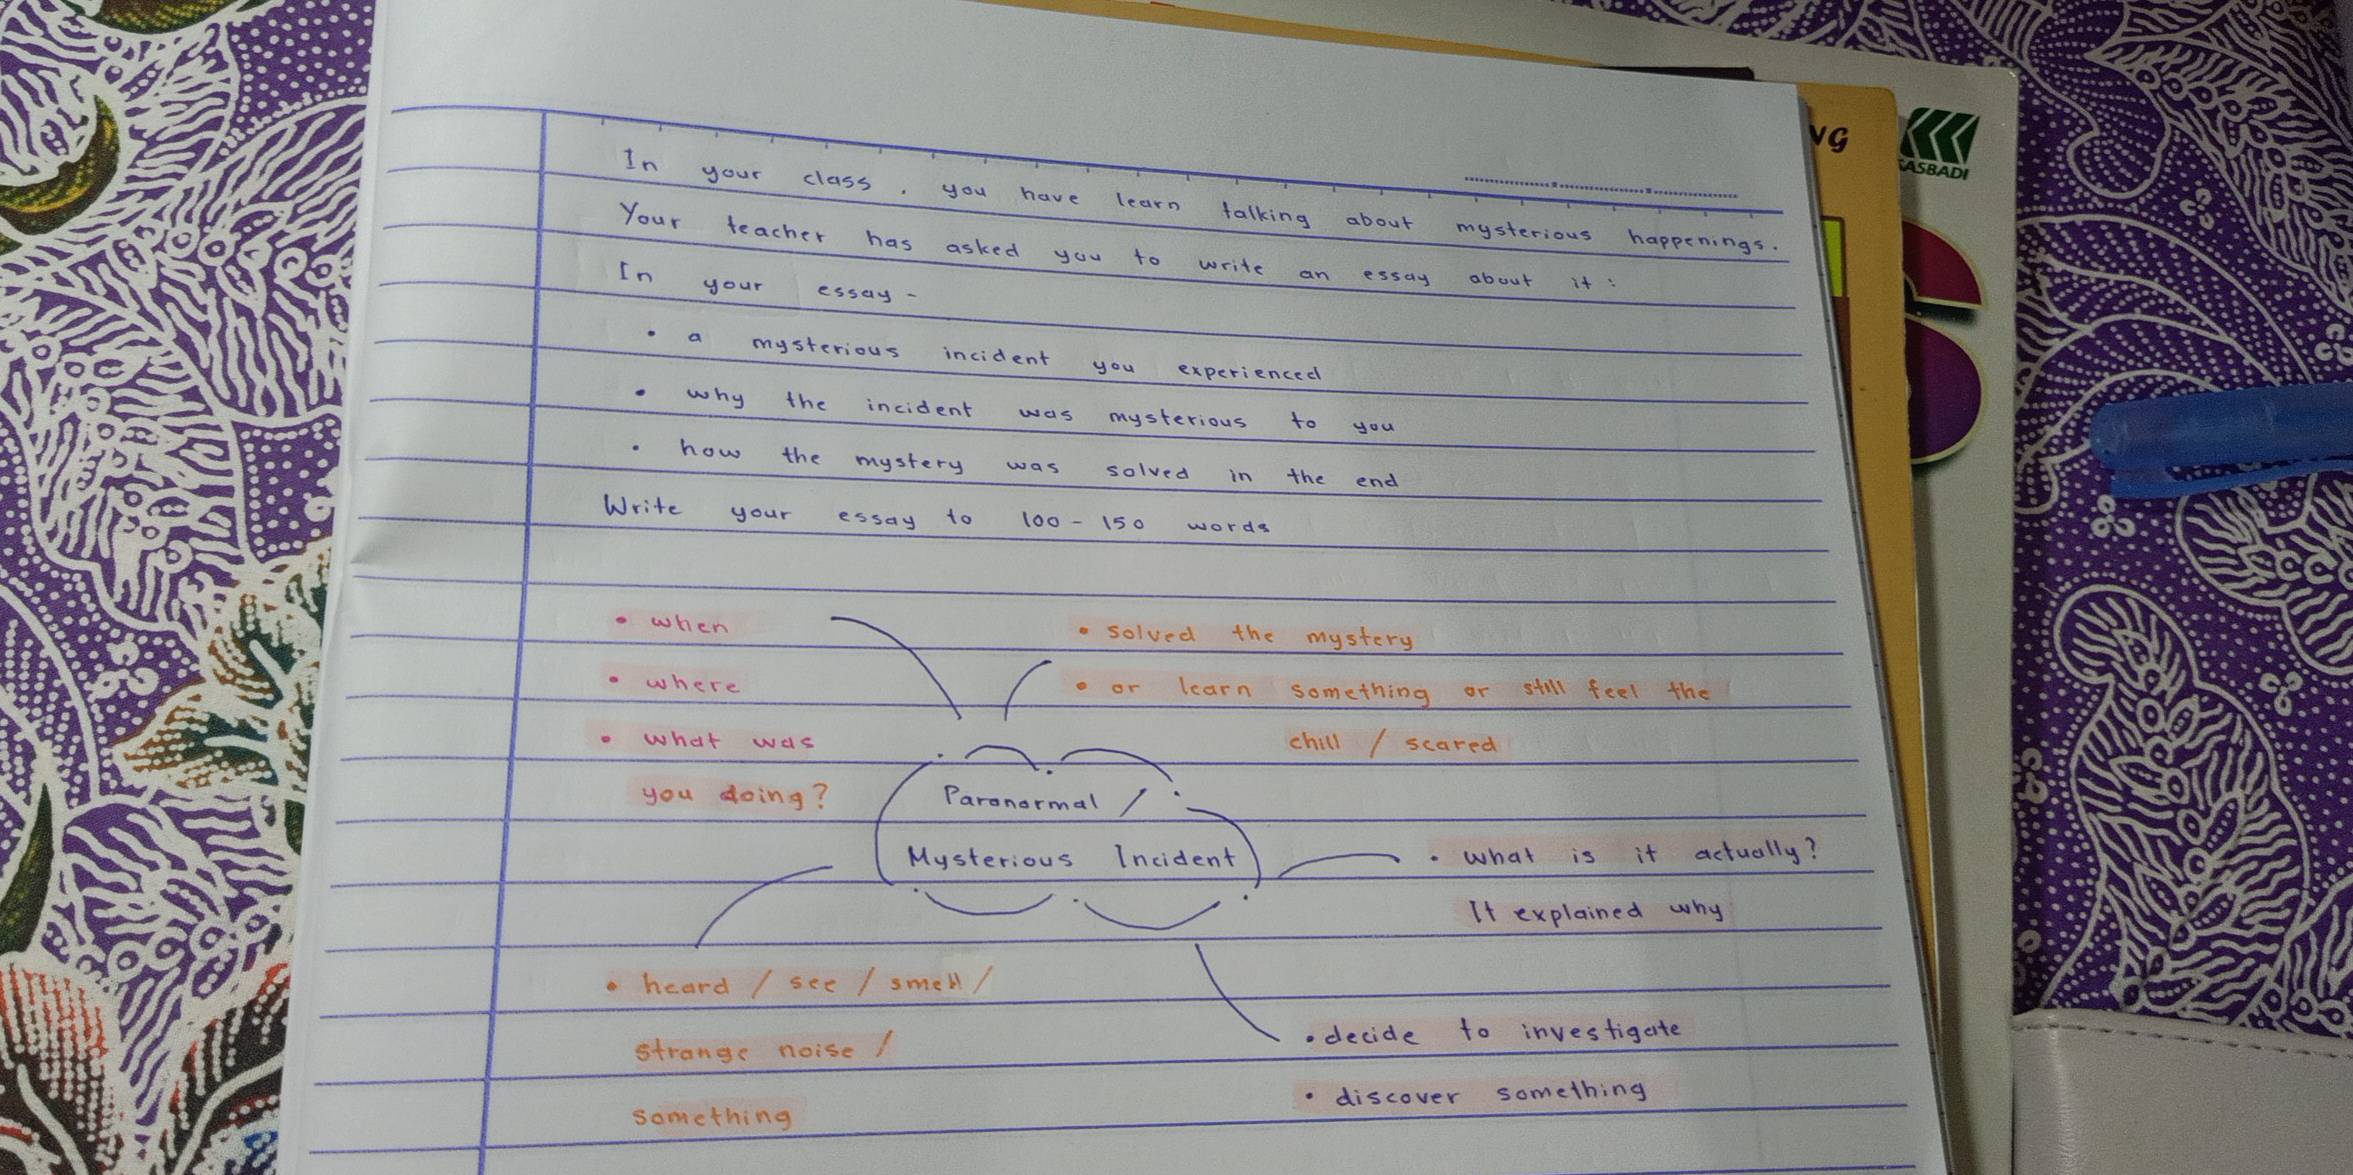 In your class, you have learn talking about mysterious happenings.
Your teacher has asked you to write an essay about it:
In your essay-
• a mysterious incident you experienced
• why the incident was mysterious to you
• how the mystery was solved in the end
Write your essay to 100-150 words
• when
• where
• what was
you doing?
• solved the mystery
• or learn something or still feel the
chill / scared
Paranormal /
Mysterious Incident
• what is it actually?
It explained why
• heard / see / smell /
strange noise /
something
• decide to investigate
• discover something
NG
SASBADI